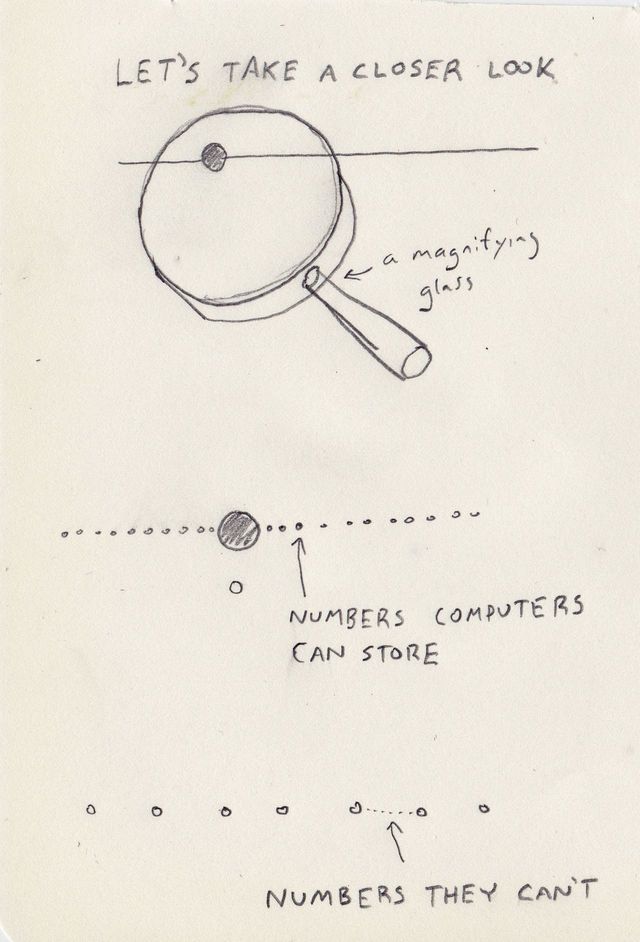 LET'S TAKE A CLOSER LOOK
a magnifying
glass
0
NUMBERS COMPUTERS
CAN STORE
NUMBERS THEY CAN'T